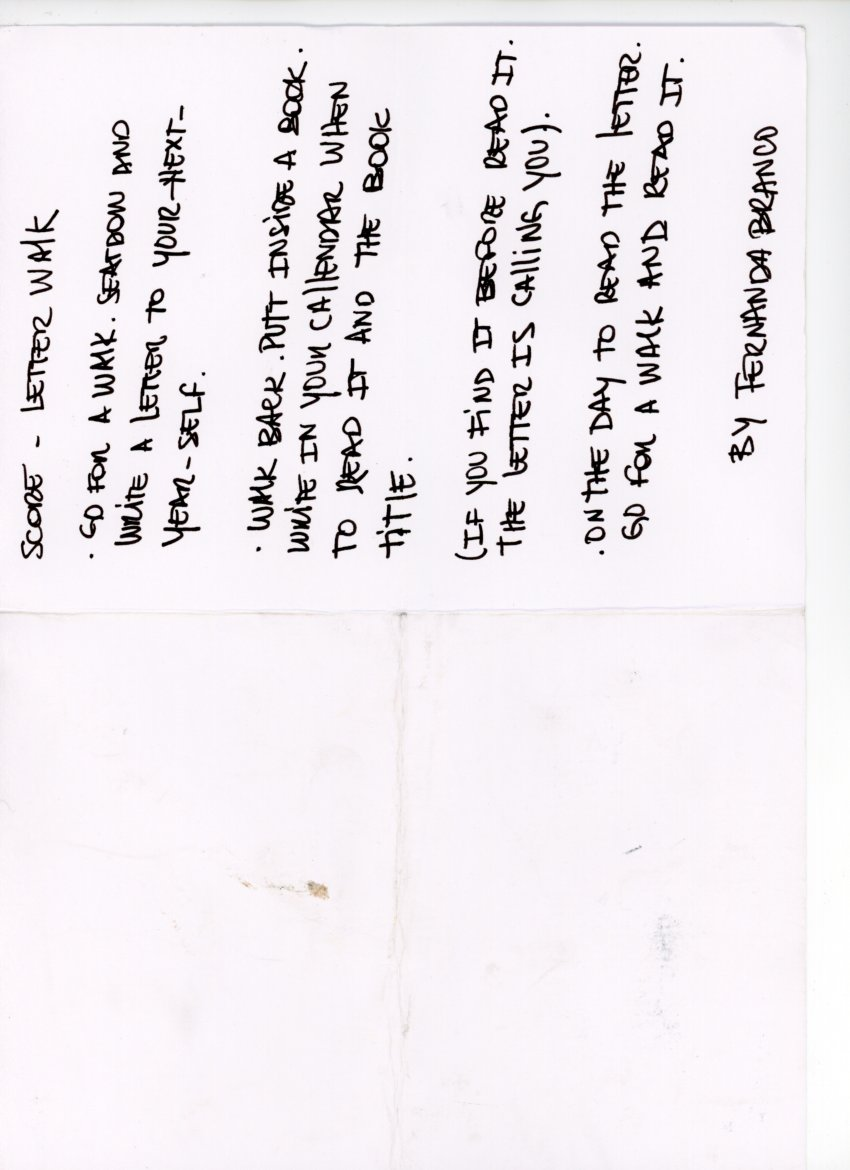 SCORE - LETTER WALK
. GO FOR A WALK. SEATDOWN AND
WRITE A LETTER TO YOUR-NEXT-
YEAR-SELF.
. WALK BACK. PUTT INSIDE A BOOK.
WRITE IN YOUR CALLENDAR WHEN
TO READ IT AND THE BOOK
TITLE.
(IF YOU FIND IT BEFORE READ IT.
THE LETTER IS CALLING YOU).
. ON THE DAY TO READ THE LETTER.
GO FOR A WALK AND READ IT.
BY FERNANDA BRANCO